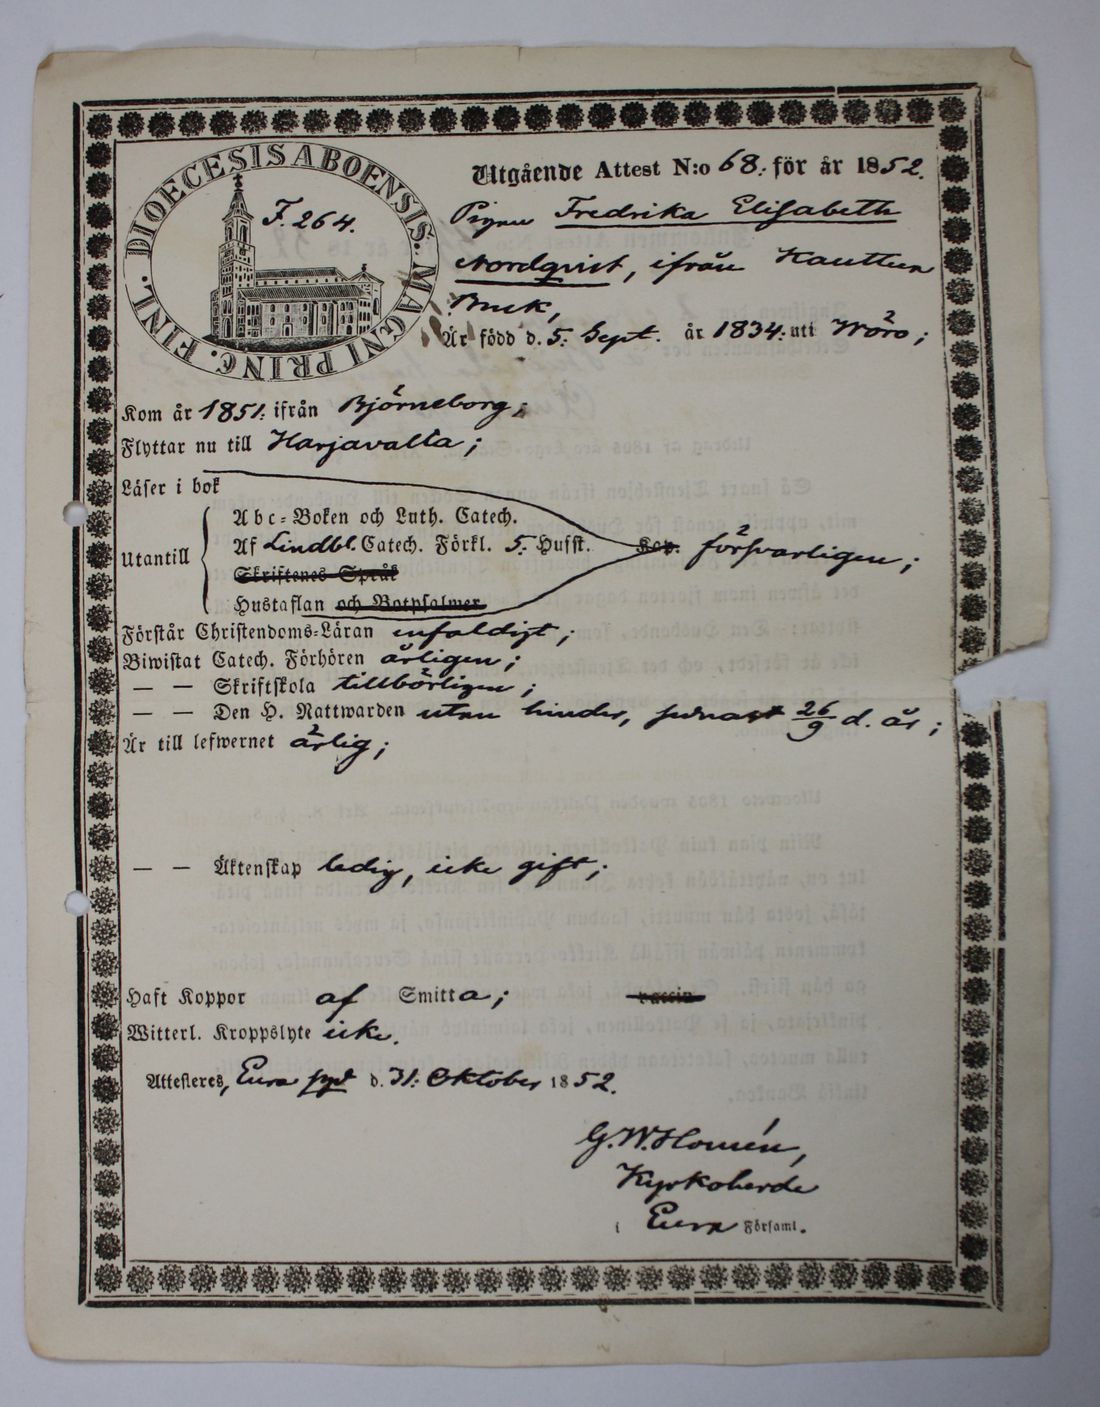 DIOECESIS ABOENSIS. MAGNI PRINC. FINL.
F. 264.
Utgående Attest N:o 68. för år 1852.
Pigan Fredrika Elisabeth
Nordqvist, ifrån Kauttua
Bruk,
Är född d. 5. Sept. år 1834. uti Wörå;
Kom år 1851. ifrån Björneborg;
Flyttar nu till Harjavalta;
Läser i bok
Utantill
Abc-Boken och Luth. Catech.
Af Lindbl. Catech. Förkl. 5. Hufst. Kap. försvarligen;
Skriftenes Språk
Hustaflan och Botpsalmer
Förstår Christendoms-Läran enfaldigt;
Biwistat Catech. Förhören årligen;
— — Skriftskola tillbörligen;
— — Den H. Nattwarden utan hinder, senast 26/9 d. år;
Är till lefwernet ärlig;
— — Äktenskap ledig, icke gift;
Haft Koppor af Smitta;
Witterl. Kroppslyte icke.
Attesteres, Eura pgd d. 31. Oktober 1852.
G. W. Homén,
Kyrkoherde
i Eura Församl.